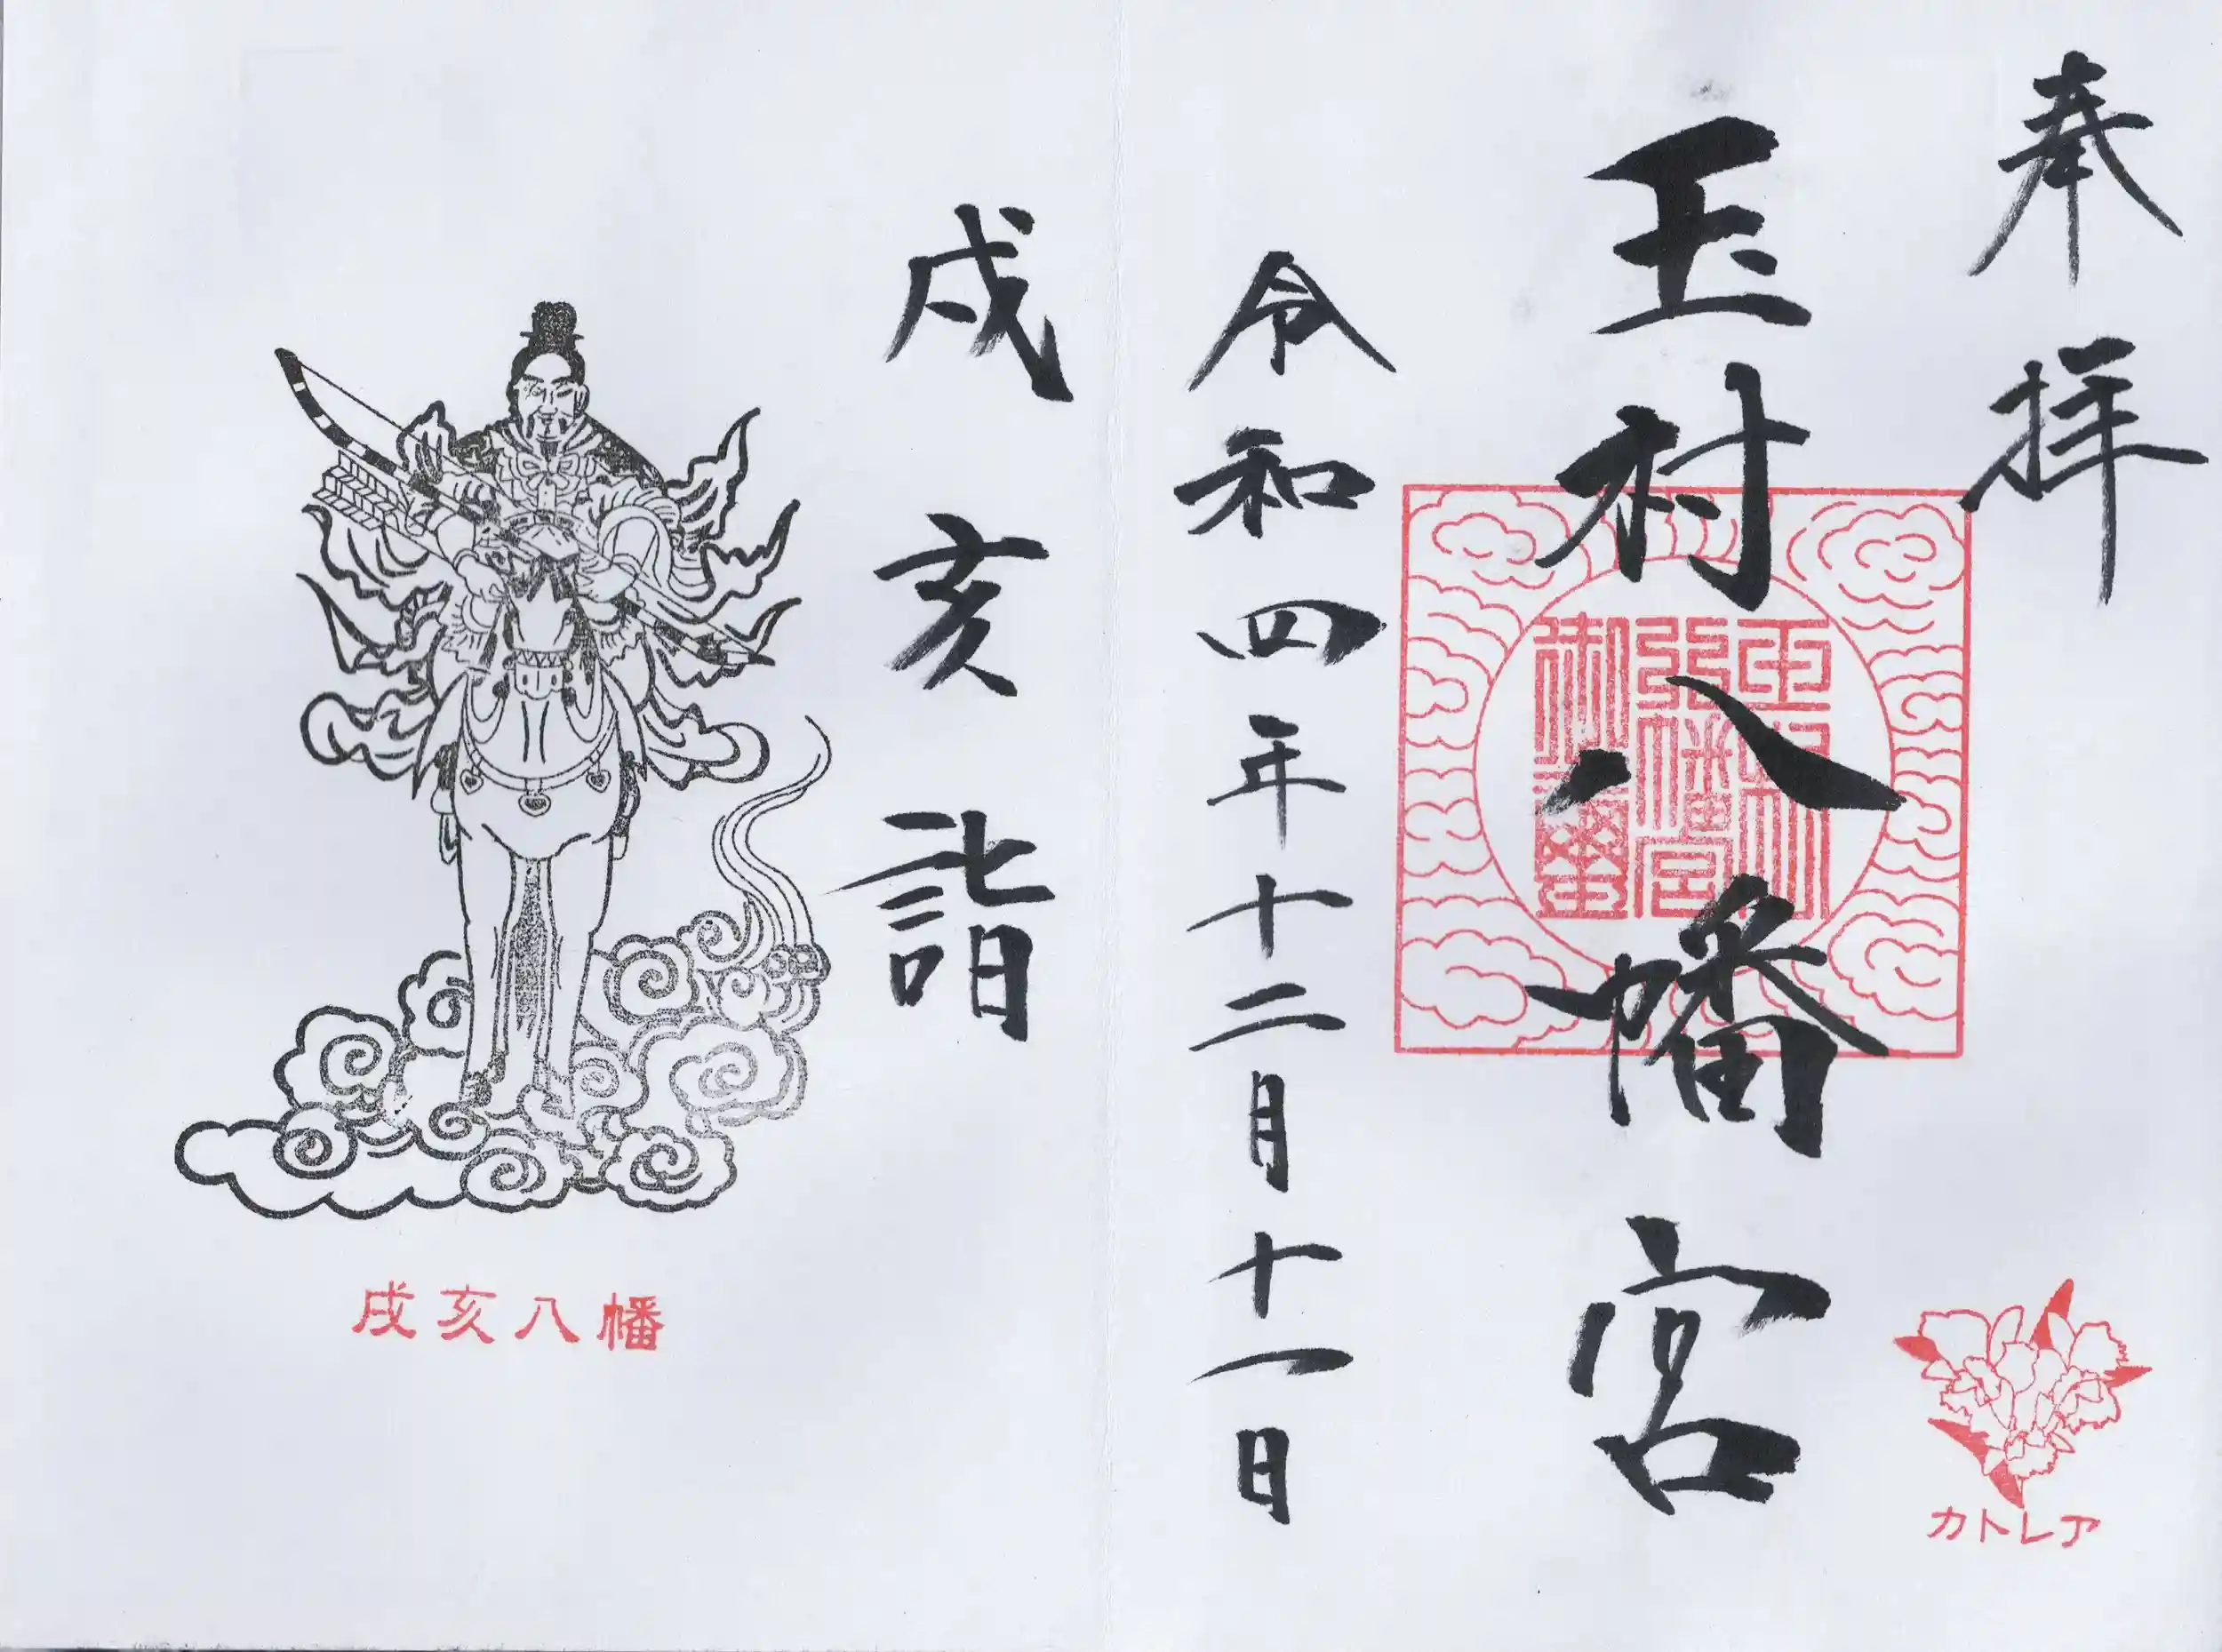 奉拝
玉村八幡宮
玉村
八幡宮
御璽
カトレア
令和四年十二月十一日
戌亥詣
戌亥八幡